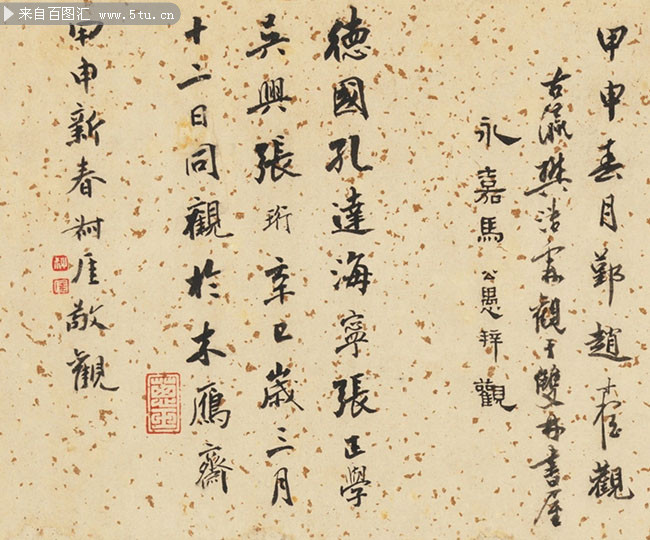 来自百图汇 www.5tu.cn
甲申春月鄞趙叔孺觀
古瀛樊浩霖觀于雙林書屋
永嘉馬公愚拜觀
德國孔達海寧張正學
吳興張珩辛巳歲三月
十二日同觀於木鴈齋
甲申新春樹厓敬觀